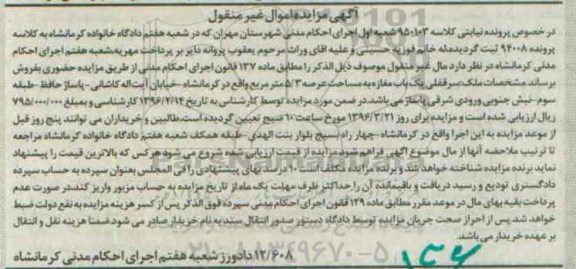 آگهی مزایده اموال غیر منقول
در خصوص پرونده نیابتی کلاسه ۹۵۰۱۰۳ شعبه اول اجرای احکام مدنی شهرستان مهران که در شعبه هفتم دادگاه خانواده کرمانشاه به کلاسه
پرونده ۹۴۰۰۸ ثبت گردیده له خانم فوزیه حسینی و علیه اقای وراث مرحوم یعقوب پروانه دایر بر پرداخت مهریه، شعبه هفتم اجرای احکام
مدنی کرمانشاه در نظر دارد مال غیر منقول موصوف ذیل الذکر را مطابق ماده ۱۳۷ قانون اجرای احکام مدنی از طریق مزایده حضوری بفروش
برساند مشخصات ملک: سرقفلی یک باب مغازه به مساحت عرصه ۵/۳ متر مربع واقع در کرمانشاه - خیابان آیت اله کاشانی - پاساژ حافظ - طبقه
سوم - نبش جنوبی ورودی شرقی پاساژ می باشد. در ضمن مورد مزایده توسط کارشناس به تاریخ ۱۳۹۶/۲/۱۴ کارشناسی و بمبلغ ۷۹۵/۰۰۰/۰۰۰
ریال ارزیابی شده است و مزایده برای روز ۱۳۹۶/۳/۲۱ مورخ ساعت ۱۰ صبح تعیین گردیده است. طالبین و خریداران می توانند پنج روز قبل
از موعد مزایده به این اجرا واقع در کرمانشاه - چهار راه بسیج بلوار بنت الهدی - طبقه همکف شعبه هفتم دادگاه خانواده کرمانشاه مراجعه
تا ترتیب ملاحضه آنها از مال موضوع آگهی فراهم شود. مزایده از قیمت ارزیابی شده شروع می شود هر کس که بالاترین قیمت را پیشنهاد
نماید برنده مزایده شناخته خواهد شد و برنده مزایده مکلف است ۱۰ درصد بهای پیشنهادی را فی المجلس بعنوان سپرده به حساب سپرده
دادگستری تودیع و رسید دریافت و باقیمانده آن را حداکثر ظرف مهلت یک ماه از تاریخ مزایده به حساب مزبور واریز کند. در صورت عدم
پرداخت بقیه بهای مال در موعد مقرر مطابق ماده ۱۲۹ قانون اجرای احکام مدنی سپرده فوق الذکر پس از کسر هزینه مزایده به نفع دولت ضبط
خواهد شد. پس از احراز صحت جریان مزایده توسط دادگاه دستور صدور انتقال سند به نام خریدار صادر می شود ضمنا هزینه نقل و انتقال
بر عهده خریدار می باشد.
۱۲/۶۰۸ دادورز شعبه هفتم اجرای احکام مدنی کرمانشاه
۰۲۱-۸۸۳۴۹۶۷۰-۵